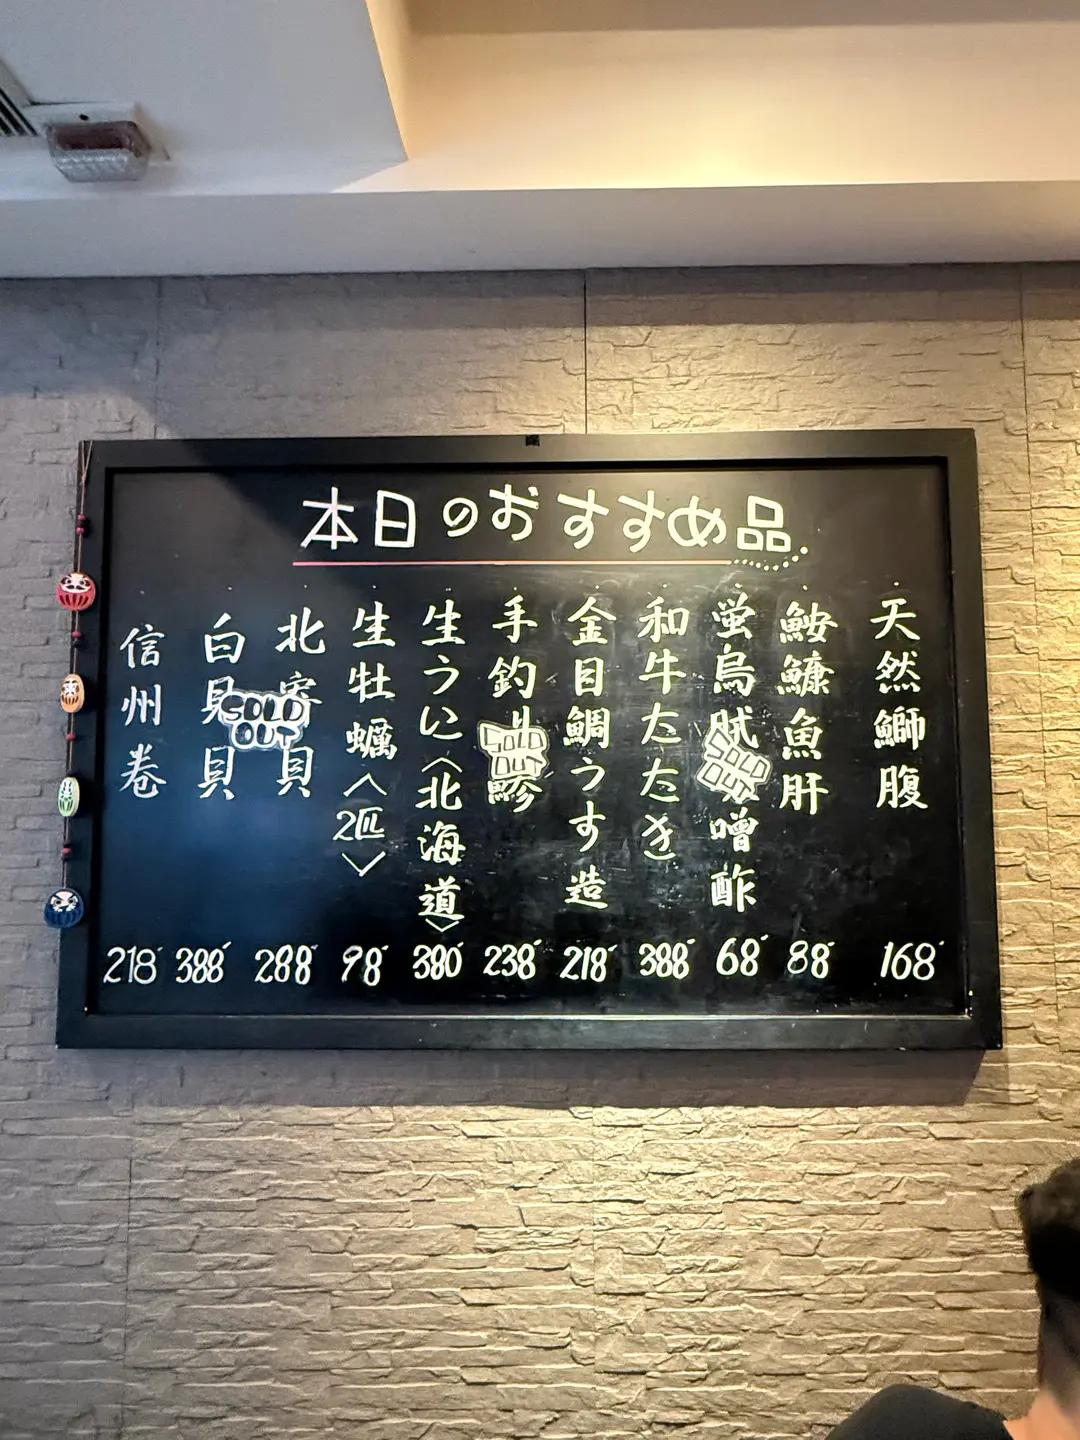 本日のおすすめ品
天然鰤腹
168
鮟鱇魚肝
88
蛍烏賊 噌酢
68
和牛たたき
388
金目鯛うす造
218
手釣り 鰺
238
生うに〈北海道〉
380
生牡蠣〈2匹〉
98
北寄貝
288
白貝貝
388
SOLD
OUT
信州巻
218